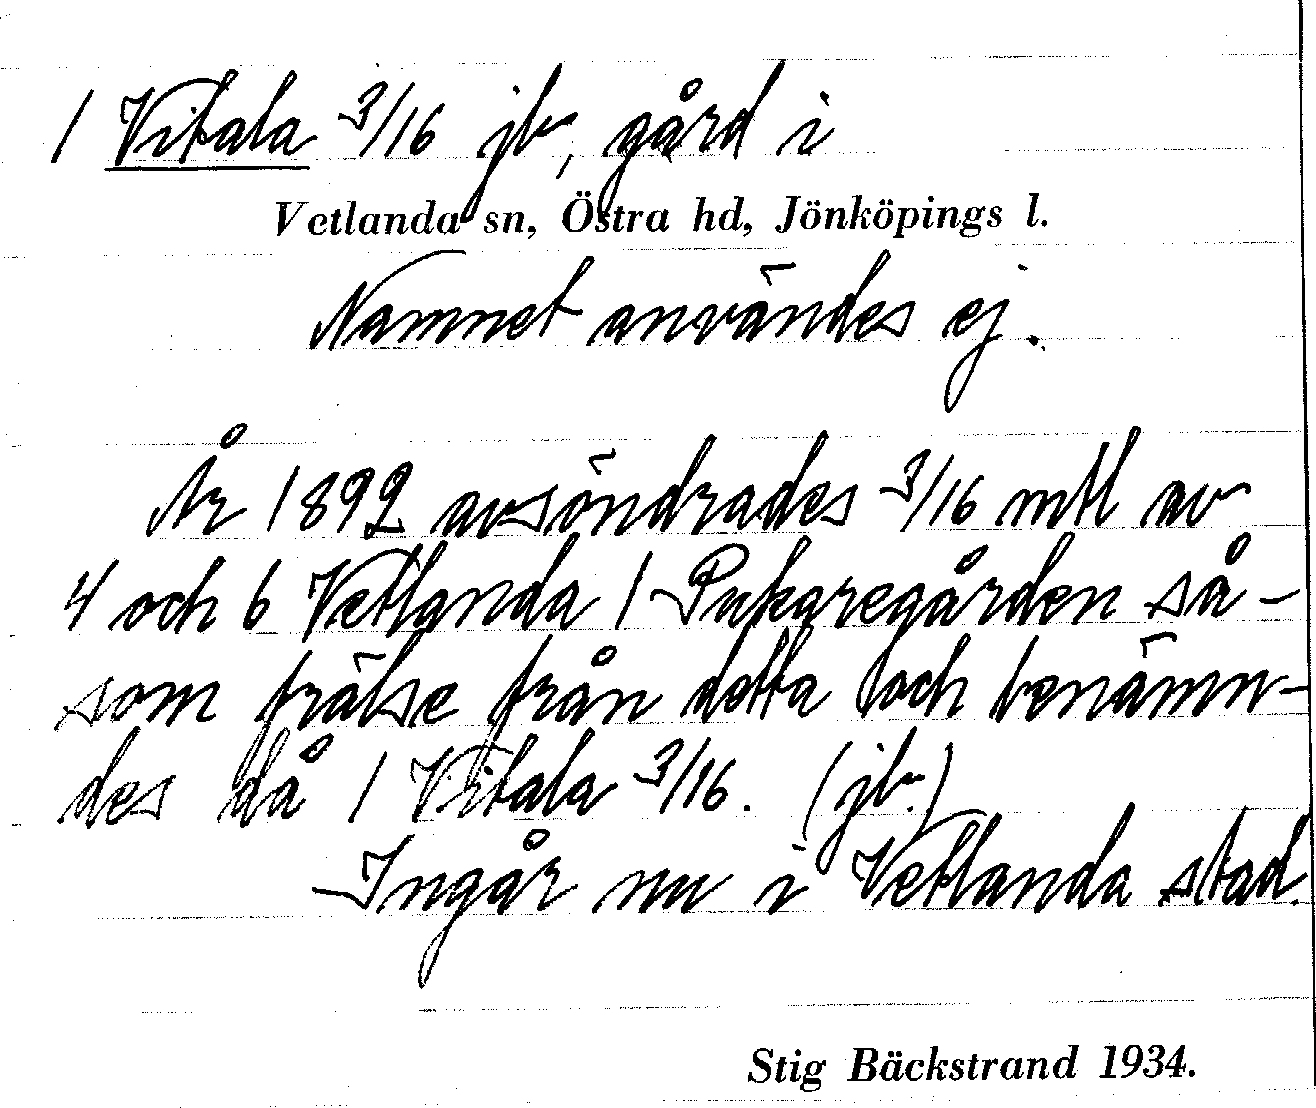 1 Vitala 3/16 jb, gård i
Vetlanda sn, Östra hd, Jönköpings l.
Namnet användes ej.
År 1892 avsöndrades 3/16 mtl av
4 och 6 Vetlanda 1 Pukaregården så-
som frälse från detta och benämn-
des då 1 Vitala 3/16. (jb.)
Ingår nu i Vetlanda stad.
Stig Bäckstrand 1934.